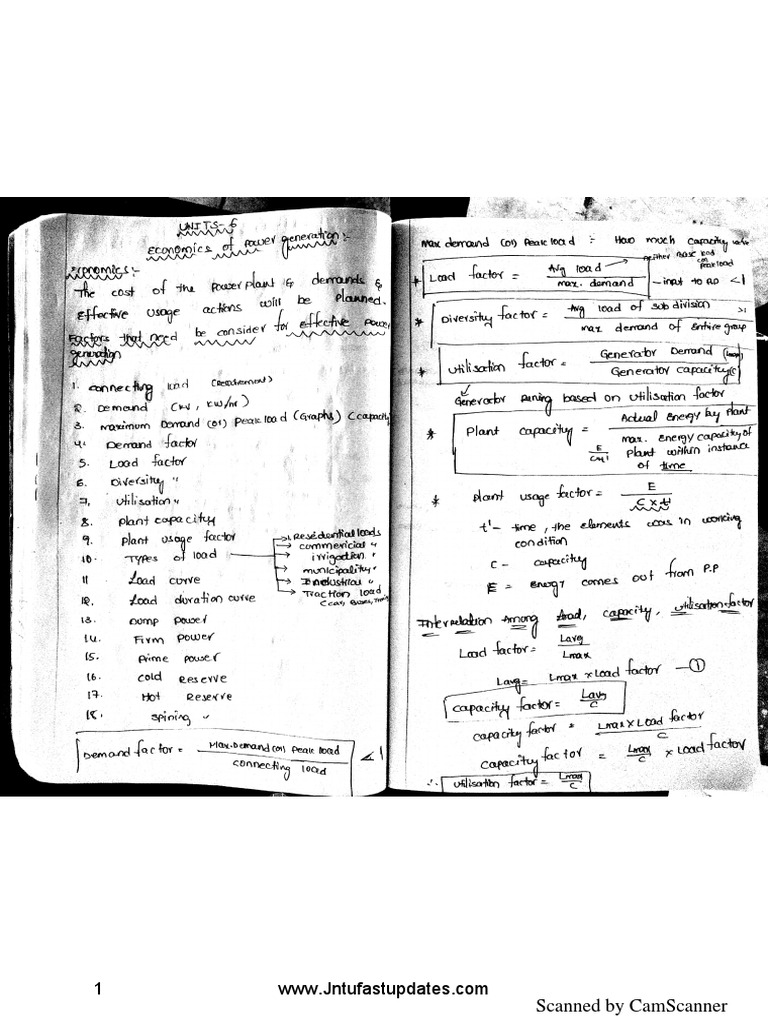 UNITS-6
Economics of Power generation:-
Economics:-
The cost of the powerplant & demands &
Effective usage actions will be planned.
Factors that need be consider for effective power
generation
1. Connecting load (Requirement)
2. Demand (kw, kw/hr)
3. Maximum Demand (or) Peak load (Graphs) (capacity
4. Demand factor
5. Load factor
6. Diversity "
7. Utilisation "
8. Plant capacity
9. Plant usage factor
10. Types of load
Residential loads
commericial "
irrigation "
municipality "
Industrial "
Traction load
(cars, Buses,
11 Load curve
12. Load duration curve
13. Dump power
14. Firm power
15. Prime power
16. cold Reserve
17. Hot Reserve
18. spining "
Demand factor = Max.Demand (or) peak load / connecting load < 1
Max demand (or) Peak load :- How much capacity
either Base load
(or)
peak load
* Load factor = Avg load / max. demand <1
* Diversity factor = Avg load of sub division / max demand of Entire group >1
* Utilisation factor = Generator Demand / Generator capacity(c)
Generator runing based on utilisation factor
* Plant capacity = Actual Energy by plant / max. Energy capacity of
plant within instance
of time
* Plant usage factor = E / C x t'
t' - time, the elements was in working
condition
C - capacity
E = Energy comes out from P.P
Interrelation Among Load, capacity, utilisation factor
Load factor = Lavg / Lmax
Lavg = Lmax x Load factor — ①
capacity factor = Lavg / C
capacity factor = Lmax x Load factor / C
capacity factor = Lmax / C x Load factor
∴ Utilisation factor = Lmax / C
1 www.Jntufastupdates.com
Scanned by CamScanner